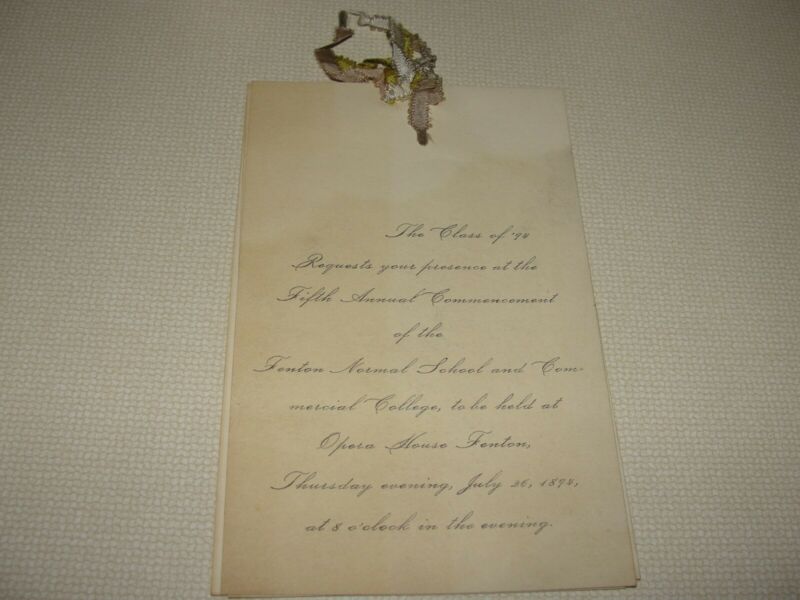 The Class of '94
Requests your presence at the
Fifth Annual Commencement
of the
Fenton Normal School and Com-
mercial College, to be held at
Opera House Fenton,
Thursday evening, July 26, 1894,
at 8 o'clock in the evening.